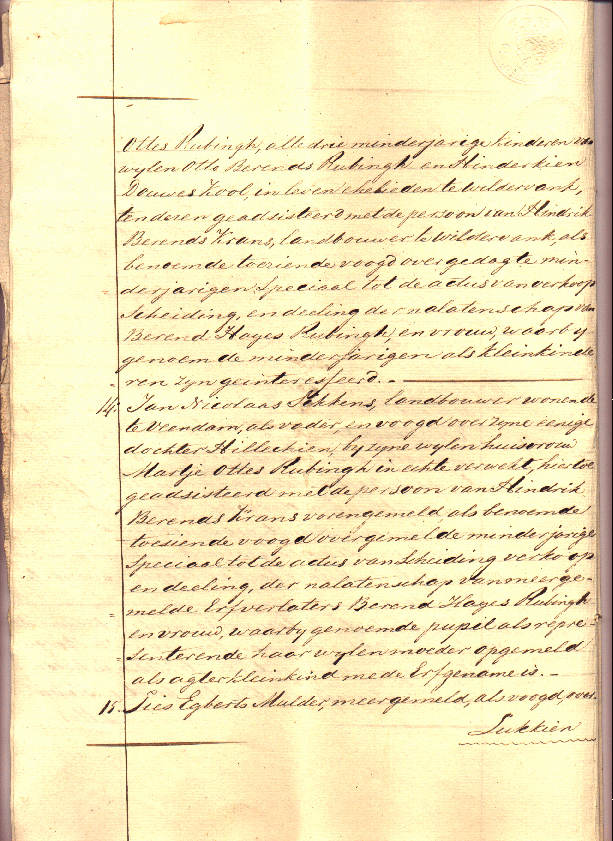 Ottes Rubingh, alle drie minderjarige kinderen van
wylen Otto Berends Rubingh en Hinderkien
Douwes Kool, in leven ehelieden te Wildervank,
ten deren geadsisteerd met de persoon van Hindrik
Berends Krans, landbouwer te Wildervank, als
benoemde toeziende voogd over gedagte min-
derjarigen speciaal tot de actus van verkoop
scheiding, en deeling der nalatenschap van
Berend Hayes Rubingh, en vrouw, waarby
genoemde minderjarigen als kleinkinde
ren zyn geinteresseerd. -
14. Jan Nicolaas Stekkens, landbouwer wonende
te Veendam, als vader, en voogd over zyne eenige
dochter Hillechien, by zyne wylen huisvrouw
Martje Ottes Rubingh in echte verwekt, hiertoe
geadsisteerd met de persoon van Hindrik
Berends Krans vorengemeld, als benoemde
toesiende voogd over gemelde minderjarige
speciaal tot de actus van scheiding verkoop
en deeling, der nalatenschap van meerge-
melde Erfverlaters Berend Hayes Rubingh
en vrouw, waarby genoemde pupil als repre-
senterende haar wylen moeder opgemeld
als agterkleinkind mede Erfgename is. -
15. Sies Egberts Mulder, meergemeld, als voogd, over
Lukkien